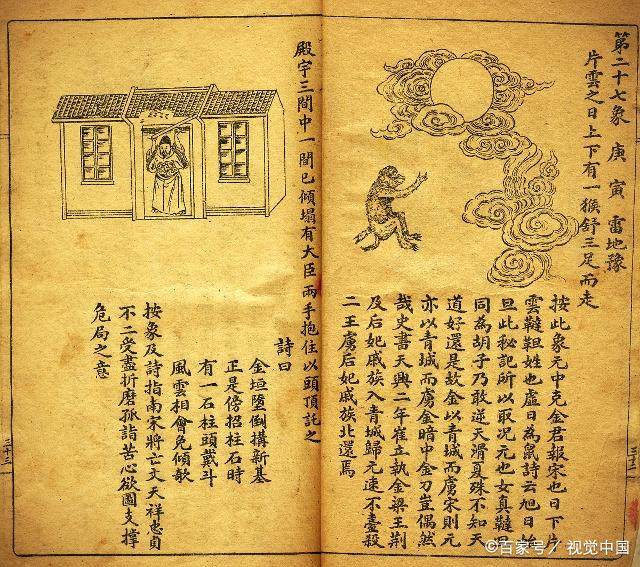 第二十七象 庚寅 雷地豫
片雲之日上下有一猴舒三足而走
按此象元中克金君報宋也日下片
雲韃靼姓也虛日為氣詩云旭日始
旦此秘記所以取况元也女真韃靼
同為胡子乃敢逆天滑夏殊不知天
道好還是故金以青城而虜宋則元
亦以青城而虜金暗中金刀豈偶然
哉史書天興二年崔立執金梁王荆
及后妃戚族入青城歸元速不臺殺
二王虜后妃戚族北還焉
三十二
殿宇三間中一間已傾塌有大臣兩手抱住以頭頂託之
詩曰
金垣墮倒搆新基
正是傍招柱石時
有一石柱頭戴斗
風雲相會免傾欹
按象及詩指南宋將亡文天祥忠貞
不二受盡折磨孤詣苦心欲圖支撐
危局之意
三十三
©百家号/视觉中国